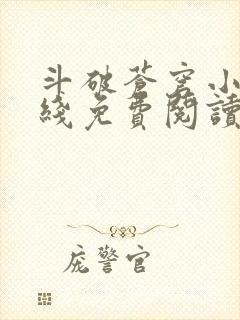 斗破蒼穹小
綫免費閱讀
庞警官